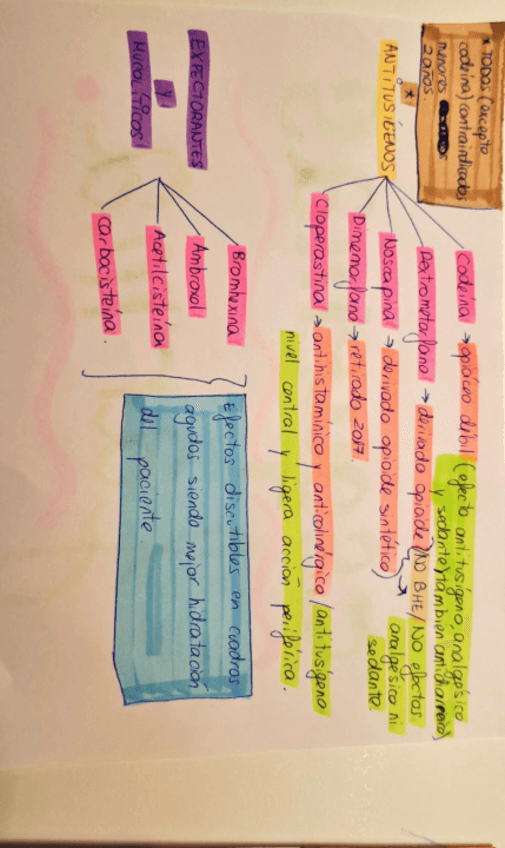 * TODOS (excepto
codeína) contraindicados
menores
2 años.
ANTITUSÍGENOS
*
Codeína → opiáceo débil (efecto antitusígeno, analgésico
y sedante) también antidiarreico)
Dextrometorfano → derivado opioide
Noscapina → derivado opioide sintético
→ NO BHE / NO efectos
analgésico ni
sedante.
Dimemorfano → retirado 2017.
Cloperastina → antihistamínico y anticolinérgico / antitusígeno
nivel central y ligera acción periférica.
EXPECTORANTES
y
MUCOLÍTICOS
Bromhexina
Ambroxol
Acetilcisteína
Carbocisteína.
Efectos discutibles en cuadros
agudos siendo mejor hidratación
del paciente.